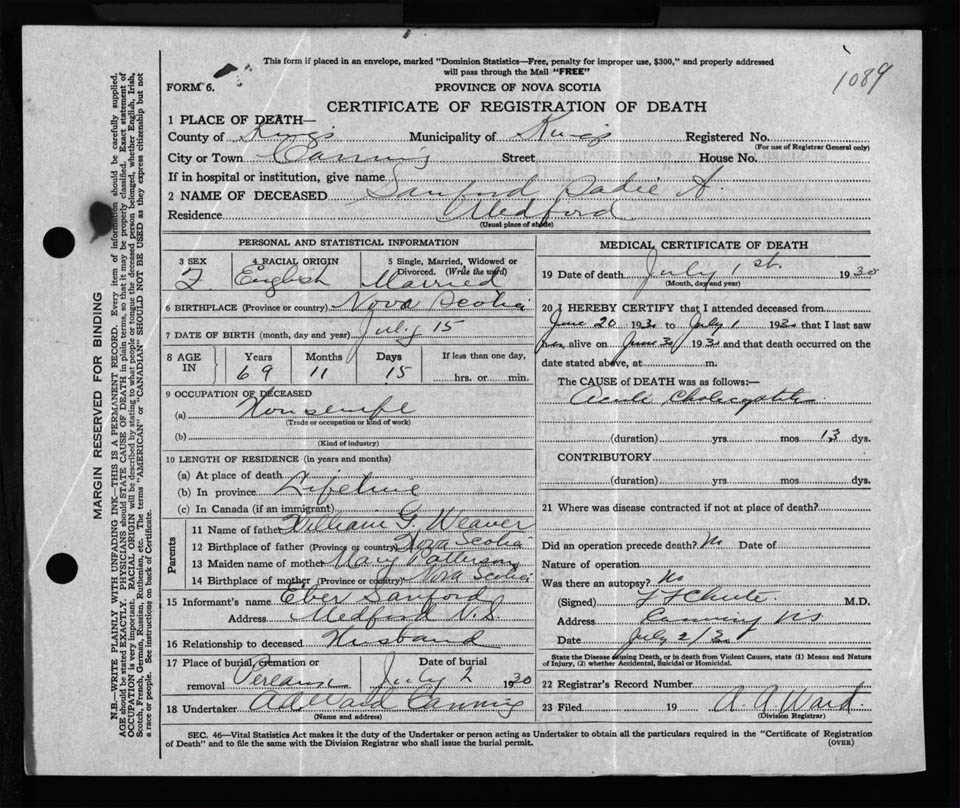 This form if placed in an envelope, marked "Dominion Statistics—Free, penalty for improper use, $300," and properly addressed
will pass through the Mail "FREE"
1089
FORM 6.
PROVINCE OF NOVA SCOTIA
CERTIFICATE OF REGISTRATION OF DEATH
1 PLACE OF DEATH—
County of Kings Municipality of Kings Registered No.
(For use of Registrar General only)
City or Town Canning Street House No.
If in hospital or institution, give name
2 NAME OF DECEASED Sanford Sadie A.
Residence Medford
(Usual place of abode)
PERSONAL AND STATISTICAL INFORMATION
3 SEX 4 RACIAL ORIGIN 5 Single, Married, Widowed or
Divorced. (Write the word)
F English Married
6 BIRTHPLACE (Province or country) Nova Scotia
7 DATE OF BIRTH (month, day and year) July 15
8 AGE IN Years Months Days If less than one day,
69 11 15 hrs. or min.
9 OCCUPATION OF DECEASED
(a) Housewife
(Trade or occupation or kind of work)
(b)
(Kind of industry)
10 LENGTH OF RESIDENCE (in years and months)
(a) At place of death
(b) In province Lifetime
(c) In Canada (if an immigrant)
Parents
11 Name of father William G. Weaver
12 Birthplace of father (Province or country) Nova Scotia
13 Maiden name of mother Mary Patterson
14 Birthplace of mother (Province or country) Nova Scotia
15 Informant's name Eber Sanford
Address Medford N.S
16 Relationship to deceased Husband
17 Place of burial, cremation or Date of burial
removal Pereaux July 2 1930
18 Undertaker A A Ward Canning
(Name and address)
MEDICAL CERTIFICATE OF DEATH
19 Date of death July 1st. 1930
(Month, day and year)
20 I HEREBY CERTIFY that I attended deceased from
June 20 1930 to July 1 1930 that I last saw
her alive on June 30 1930 and that death occurred on the
date stated above, at m.
The CAUSE OF DEATH was as follows:—
Acute Cholecystitis
(duration) yrs. mos 13 dys.
CONTRIBUTORY
(duration) yrs. mos. dys.
21 Where was disease contracted if not at place of death?
Did an operation precede death? No Date of
Nature of operation
Was there an autopsy? No
(Signed) M.D.
Address Canning NS
Date July 2/30
State the Disease causing Death, or in death from Violent Causes, state (1) Means and Nature
of Injury, (2) whether Accidental, Suicidal or Homicidal.
22 Registrar's Record Number
23 Filed 19 A. A Ward.
(Division Registrar)
SEC. 46—Vital Statistics Act makes it the duty of the Undertaker or person acting as Undertaker to obtain all the particulars required in the "Certificate of Registration
of Death" and to file the same with the Division Registrar who shall issue the burial permit. (OVER)
MARGIN RESERVED FOR BINDING
N.B.—WRITE PLAINLY WITH UNFADING INK—THIS IS A PERMANENT RECORD. Every item of information should be carefully supplied.
AGE should be stated EXACTLY. PHYSICIANS should STATE CAUSE OF DEATH in plain terms, so that it may be properly classified. Exact statement of
OCCUPATION is very important. RACIAL ORIGIN will be described by stating to what people or tongue the deceased person belonged, whether English, Irish,
Scotch, French, German, Russian, Ruthenian, etc. The terms "AMERICAN" or "CANADIAN" SHOULD NOT BE USED as they express citizenship but not
a race or people. See instructions on back of Certificate.